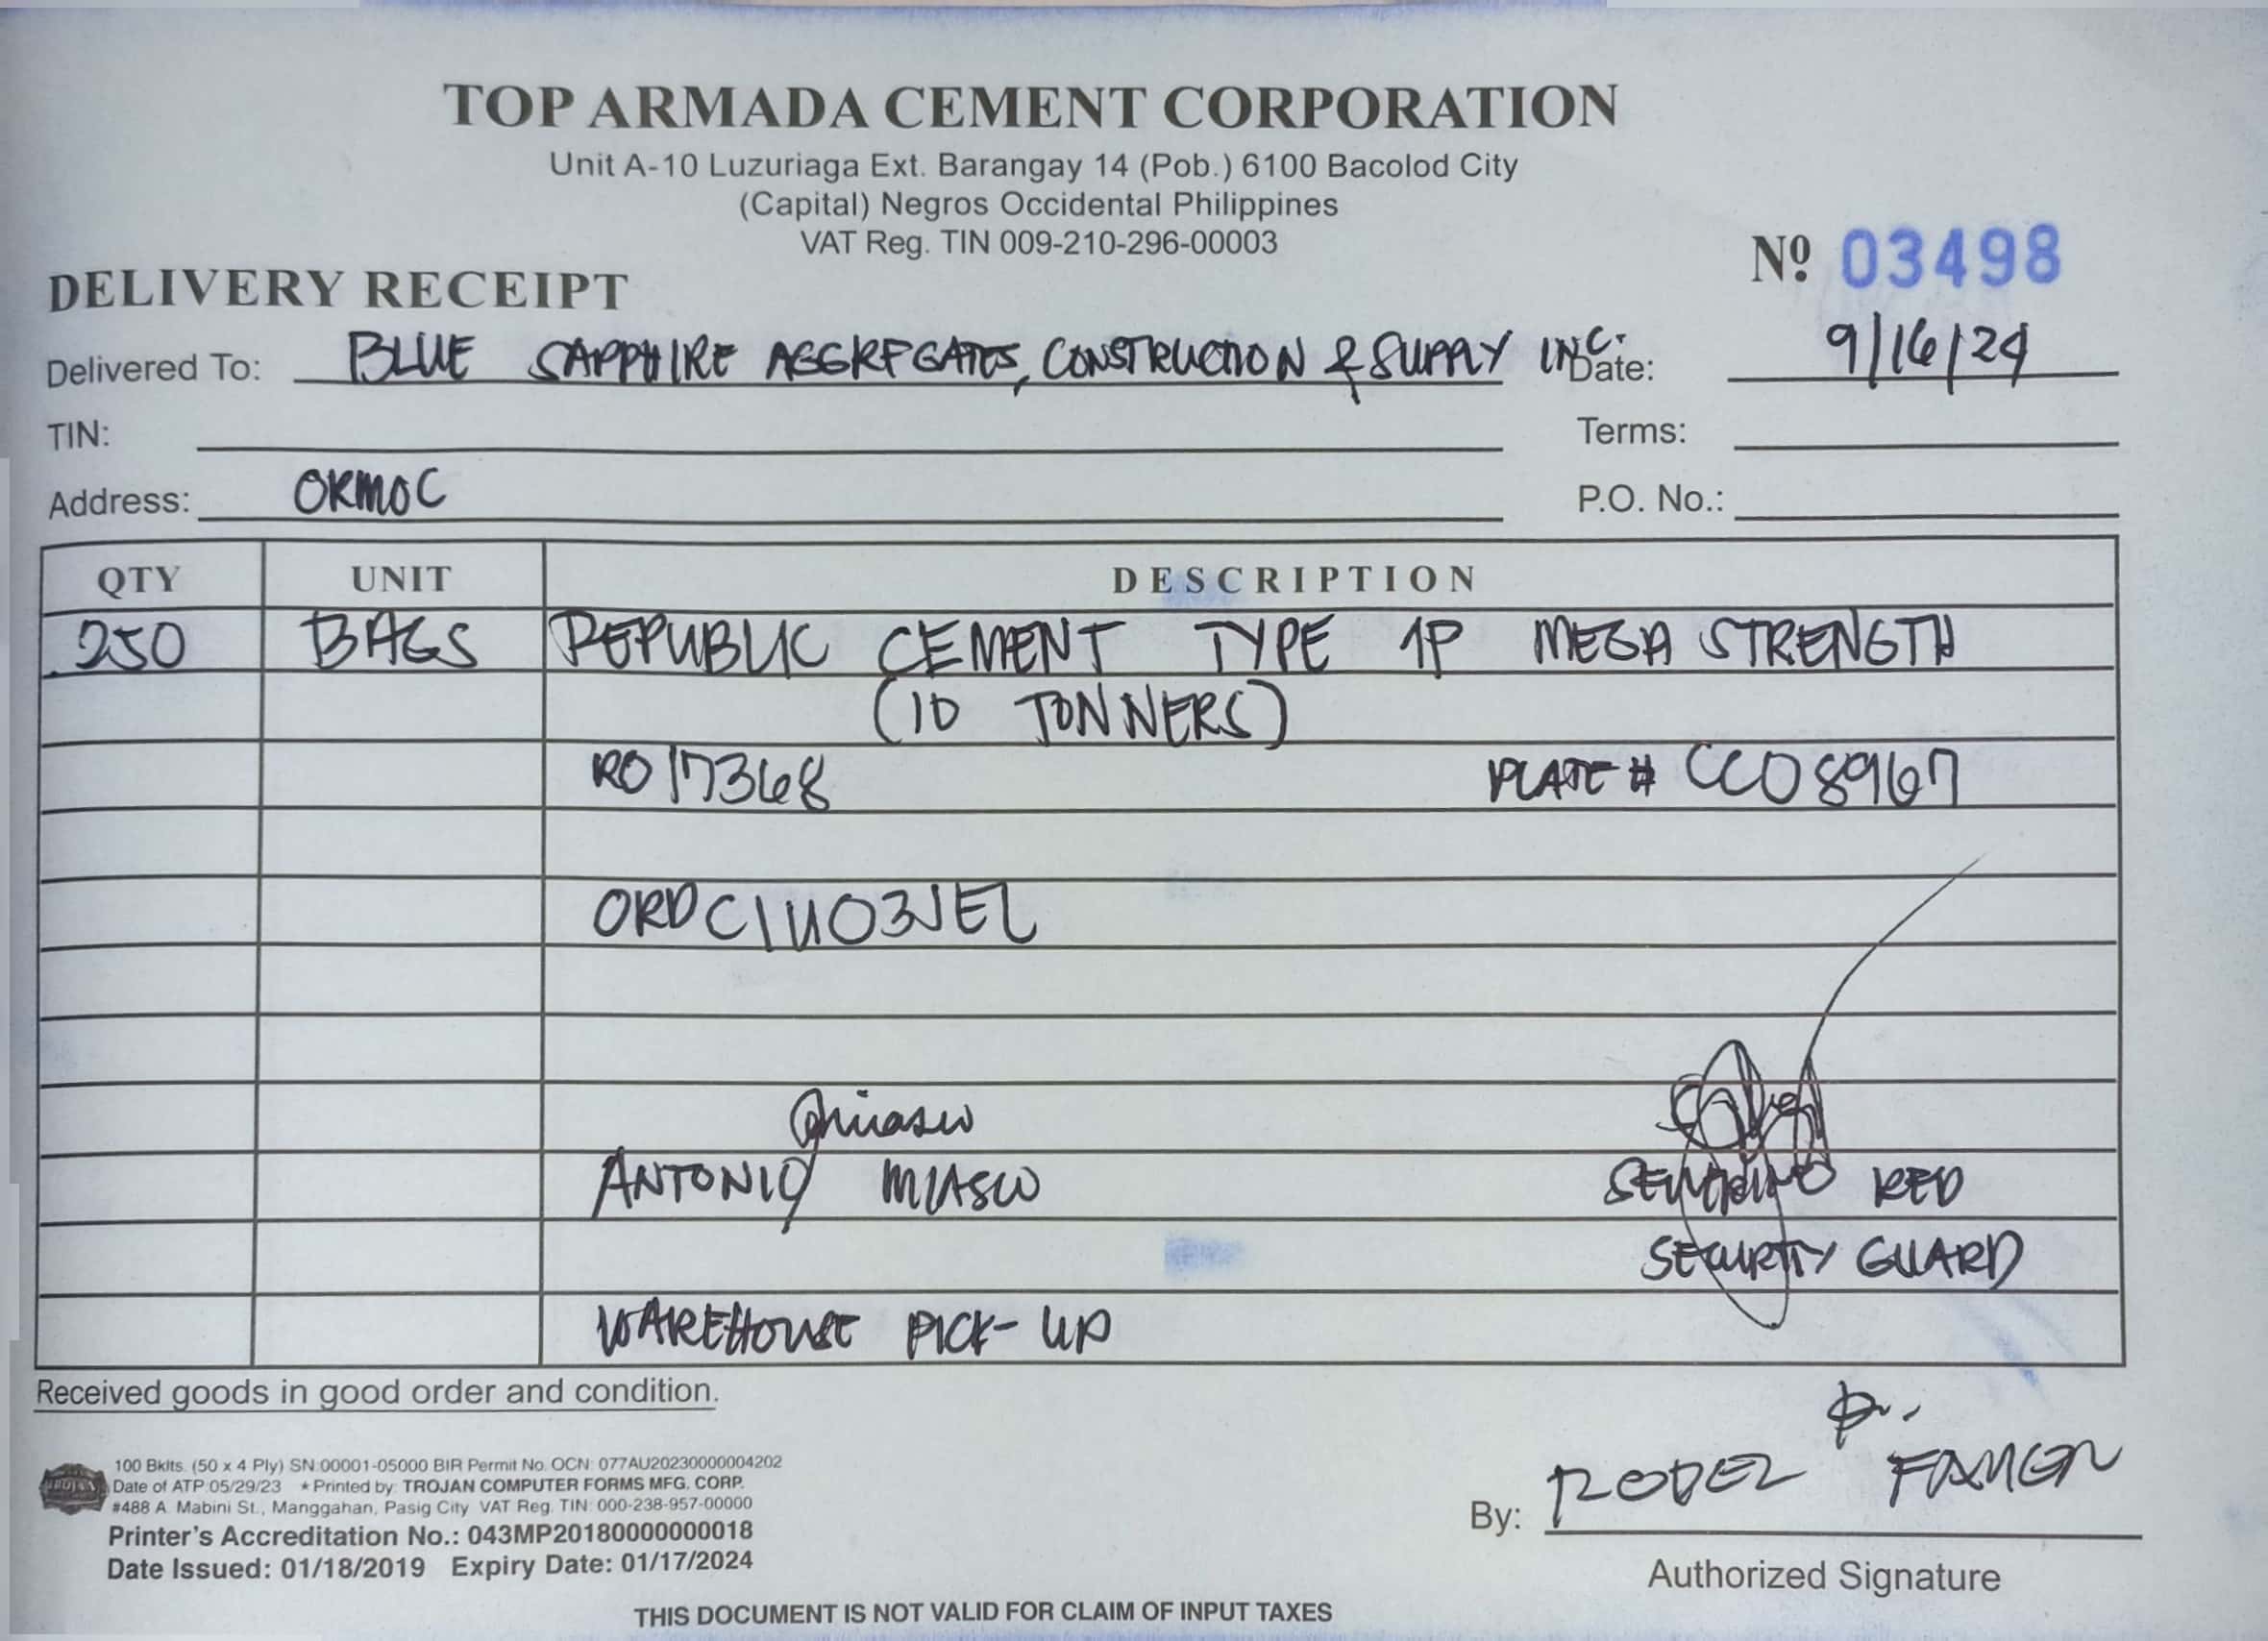 TOP ARMADA CEMENT CORPORATION
Unit A-10 Luzuriaga Ext. Barangay 14 (Pob.) 6100 Bacolod City
(Capital) Negros Occidental Philippines
VAT Reg. TIN 009-210-296-00003
Nº 03498
DELIVERY RECEIPT
Delivered To: BLUE SAPPHIRE AGGREGATES, CONSTRUCTION & SUPPLY INC. Date: 9/16/24
TIN: Terms:
Address: ORMOC P.O. No.:
QTY UNIT DESCRIPTION
250 BAGS REPUBLIC CEMENT TYPE 1P MEGA STRENGTH
(10 TONNERS)
RO 17368 PLATE # CCO 8967
ANTONIO MIASCO RED
SECURITY GUARD
WAREHOUSE PICK-UP
Received goods in good order and condition.
100 Bklts. (50 x 4 Ply) SN:00001-05000 BIR Permit No. OCN: 077AU20230000004202
Date of ATP:05/29/23 * Printed by: TROJAN COMPUTER FORMS MFG. CORP.
#488 A. Mabini St., Manggahan, Pasig City VAT Reg. TIN: 000-238-957-00000
Printer's Accreditation No.: 043MP20180000000018
Date Issued: 01/18/2019 Expiry Date: 01/17/2024
By: RODEL
Authorized Signature
THIS DOCUMENT IS NOT VALID FOR CLAIM OF INPUT TAXES